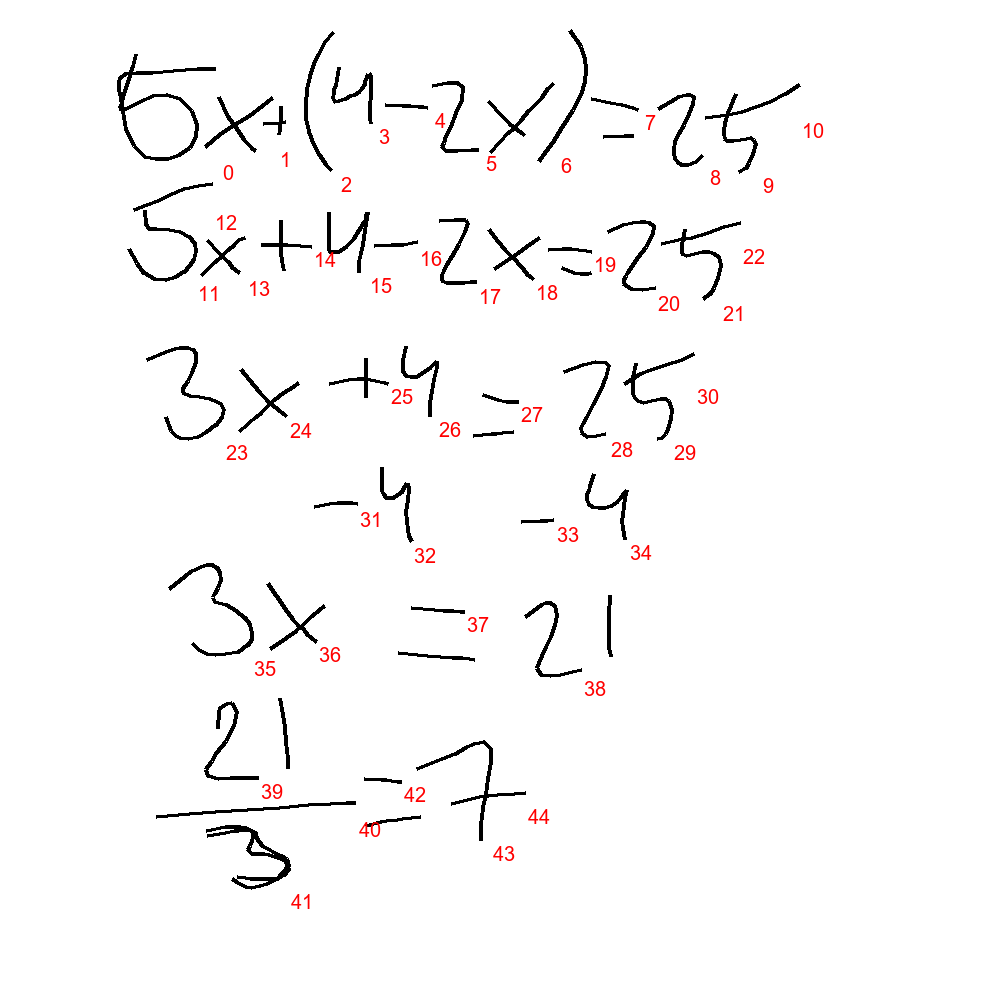 5x+(4-2x)=25
0 1 2 3 4 5 6 7 8 9 10
5x+4-2x=25
11 12 13 14 15 16 17 18 19 20 21 22
3x+4=25
23 24 25 26 27 28 29 30
-4 -4
31 32 33 34
3x=21
35 36 37 38
21/3=7
39 40 41 42 43 44